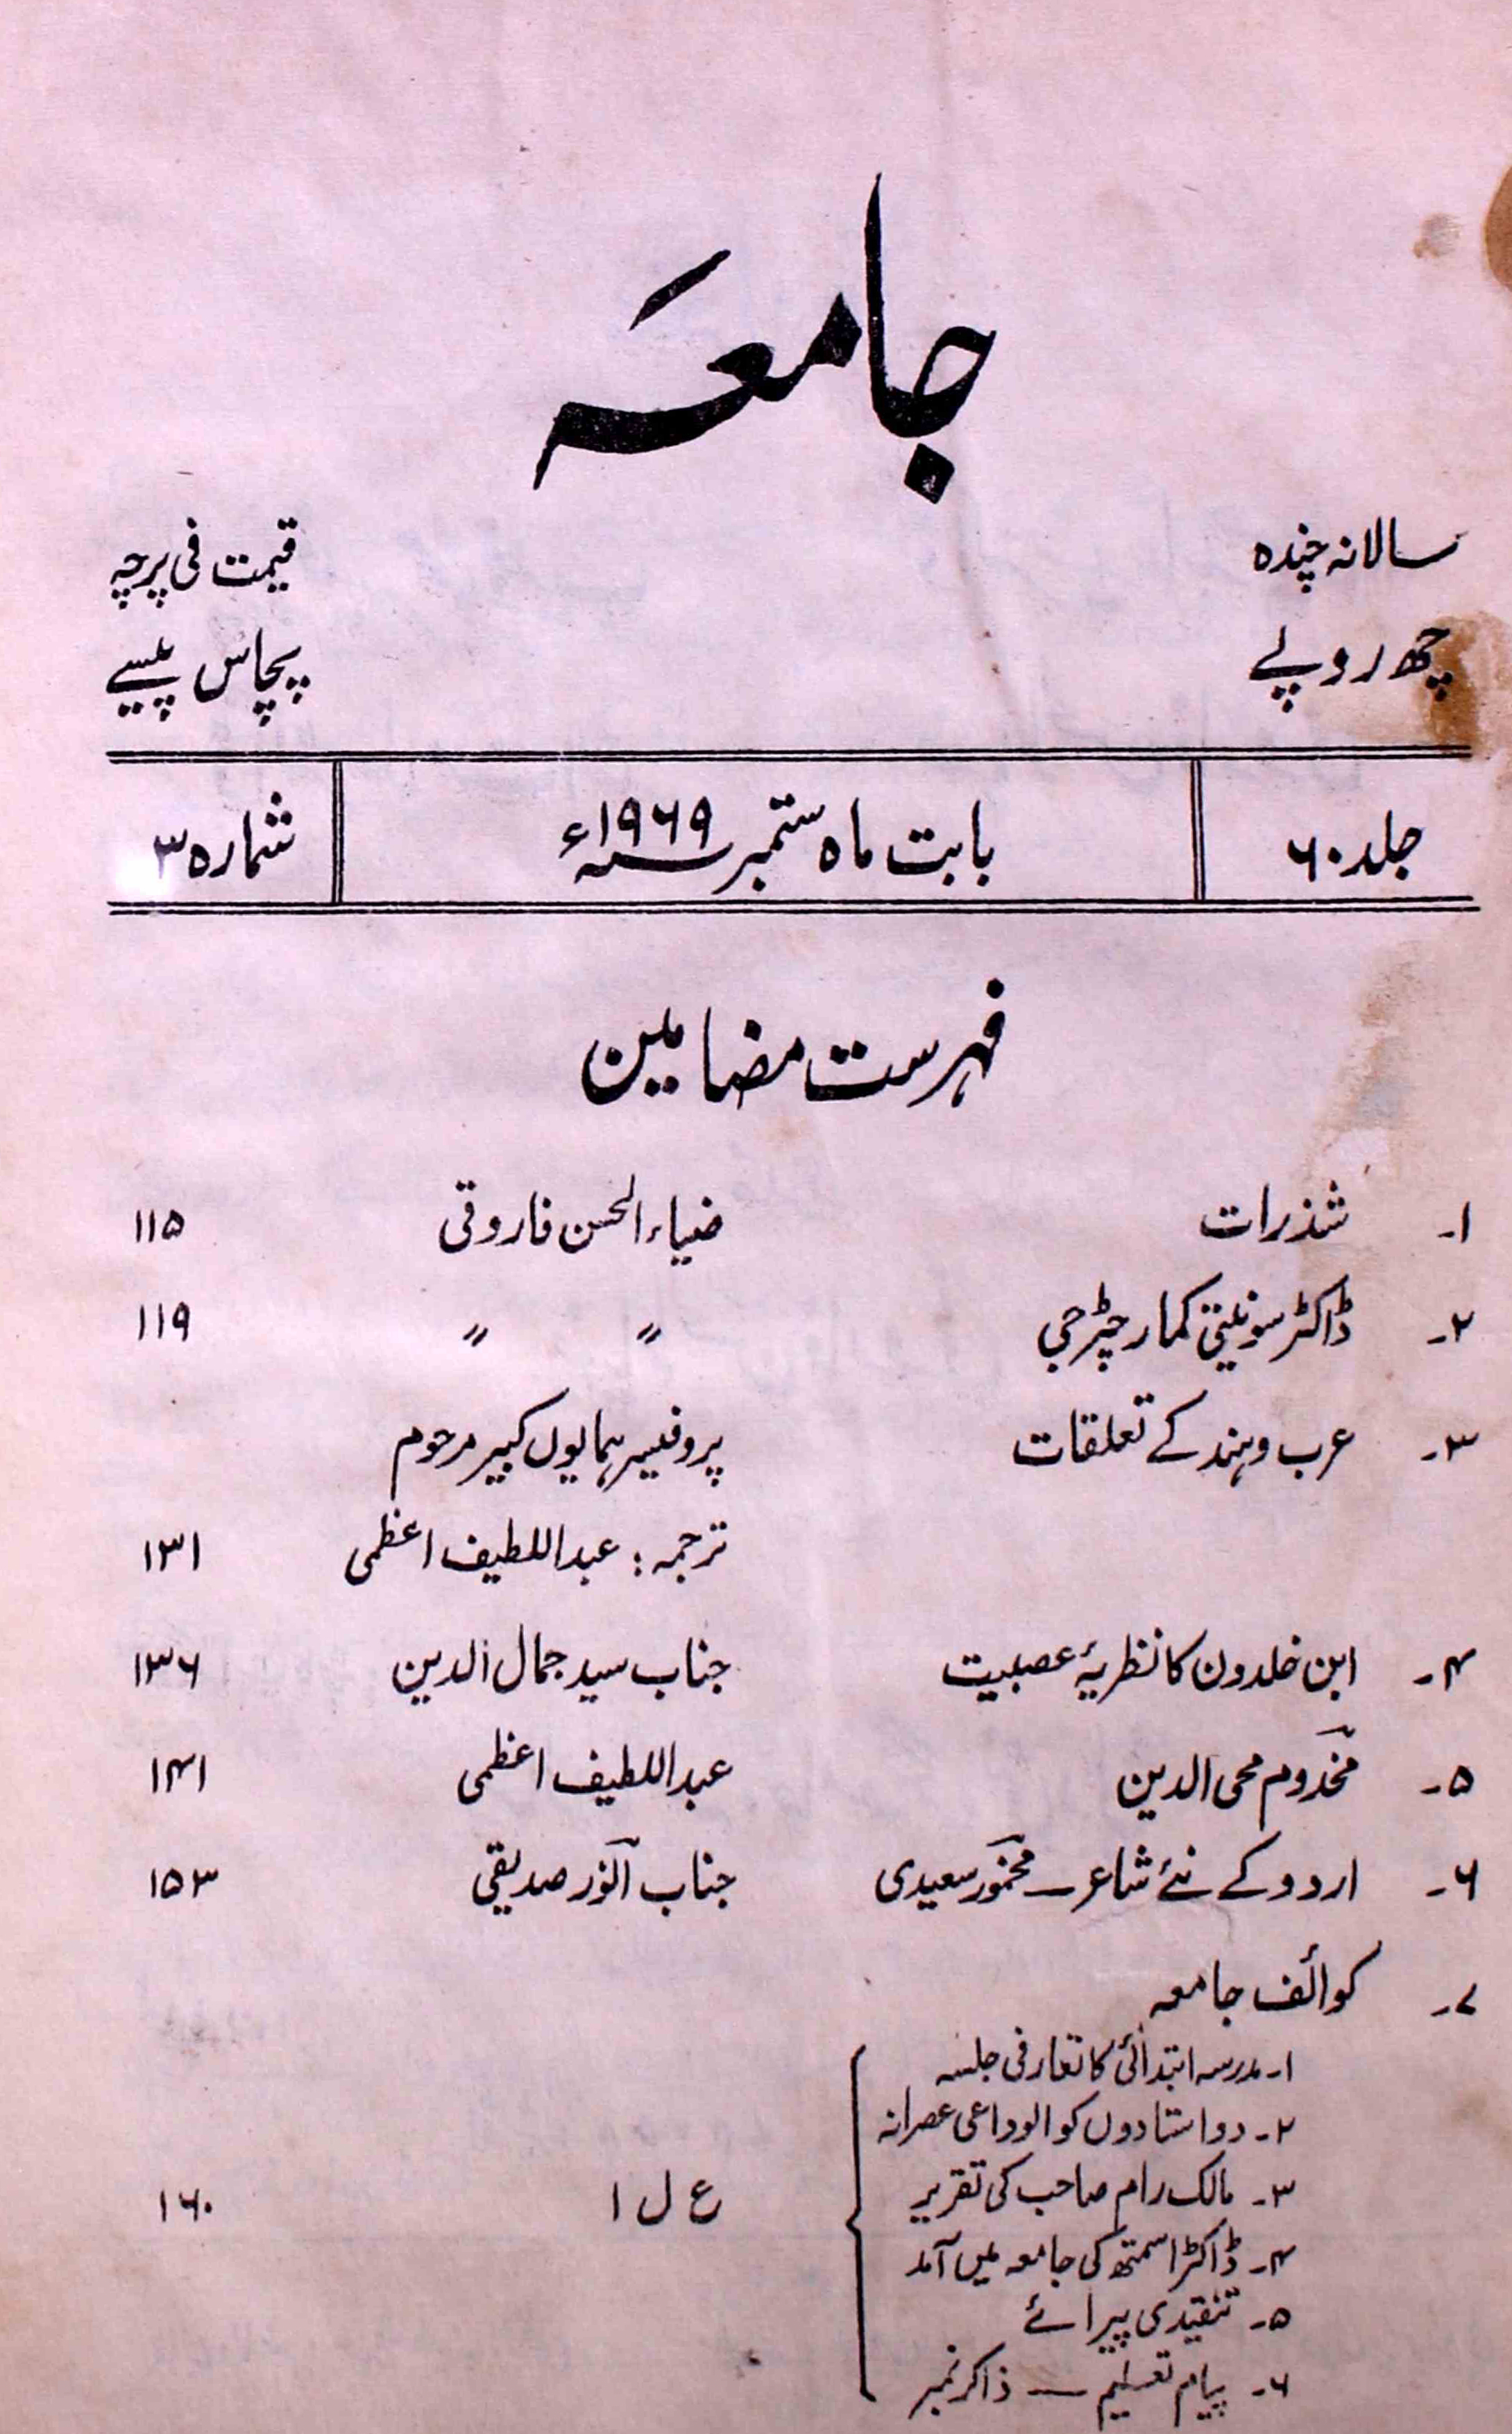 جامعہ
سالانہ چندہ
چھ روپے
قیمت فی پرچہ
پچاس پیسے
جلد ۶۰
بابت ماہ ستمبر ۱۹۶۹ء
شمارہ ۳
فہرست مضامین
۱۔ شذرات ضیاء الحسن فاروقی ۱۱۵
۲۔ ڈاکٹر سونیتی کمار چٹرجی " " ۱۱۹
۳۔ عرب و ہند کے تعلقات پروفیسر ہمایوں کبیر مرحوم
ترجمہ: عبداللطیف اعظمی ۱۳۱
۴۔ ابن خلدون کا نظریۂ عصبیت جناب سید جمال الدین ۱۳۶
۵۔ مخدوم محی الدین عبداللطیف اعظمی ۱۴۱
۶۔ اردو کے نئے شاعر — مخمور سعیدی جناب انور صدیقی ۱۵۳
۷۔ کوائف جامعہ
۱۔ مدرسہ ابتدائی کا تعارفی جلسہ
۲۔ دو استادوں کو الوداعی عصرانہ
۳۔ مالک رام صاحب کی تقریر
ع ل ا ۱۶۰
۴۔ ڈاکٹر اسمتھ کی جامعہ میں آمد
۵۔ تنقیدی پیرائے
۶۔ پیام تعلیم — ذاکر نمبر